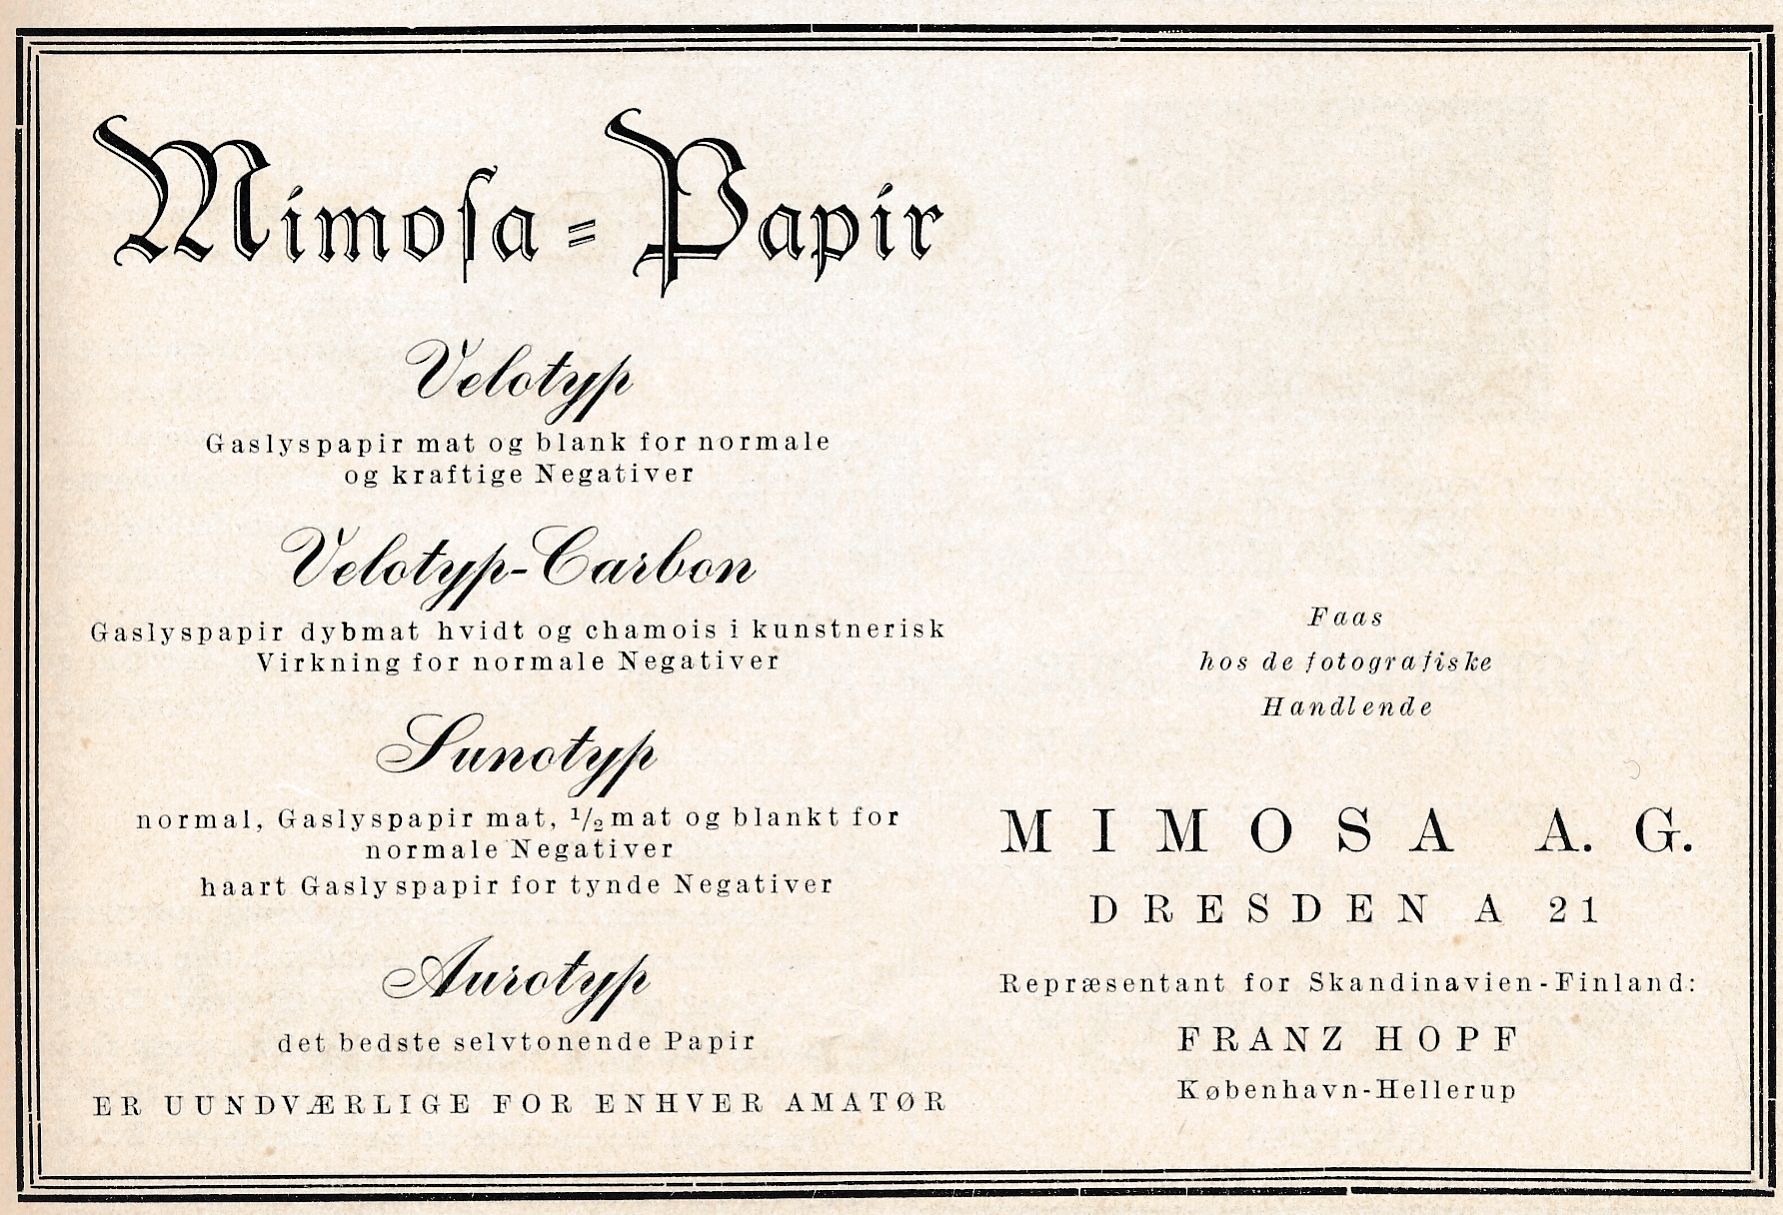 Mimoſa-Papir
Velotyp
Gaslyspapir mat og blank for normale
og kraftige Negativer
Velotyp-Carbon
Gaslyspapir dybmat hvidt og chamois i kunstnerisk
Virkning for normale Negativer
Sunotyp
normal, Gaslyspapir mat, 1/2 mat og blankt for
normale Negativer
haart Gaslyspapir for tynde Negativer
Aurotyp
det bedste selvtonende Papir
ER UUNDVÆRLIGE FOR ENHVER AMATØR
Faas
hos de fotografiske
Handlende
MIMOSA A. G.
DRESDEN A 21
Repræsentant for Skandinavien-Finland:
FRANZ HOPF
København-Hellerup